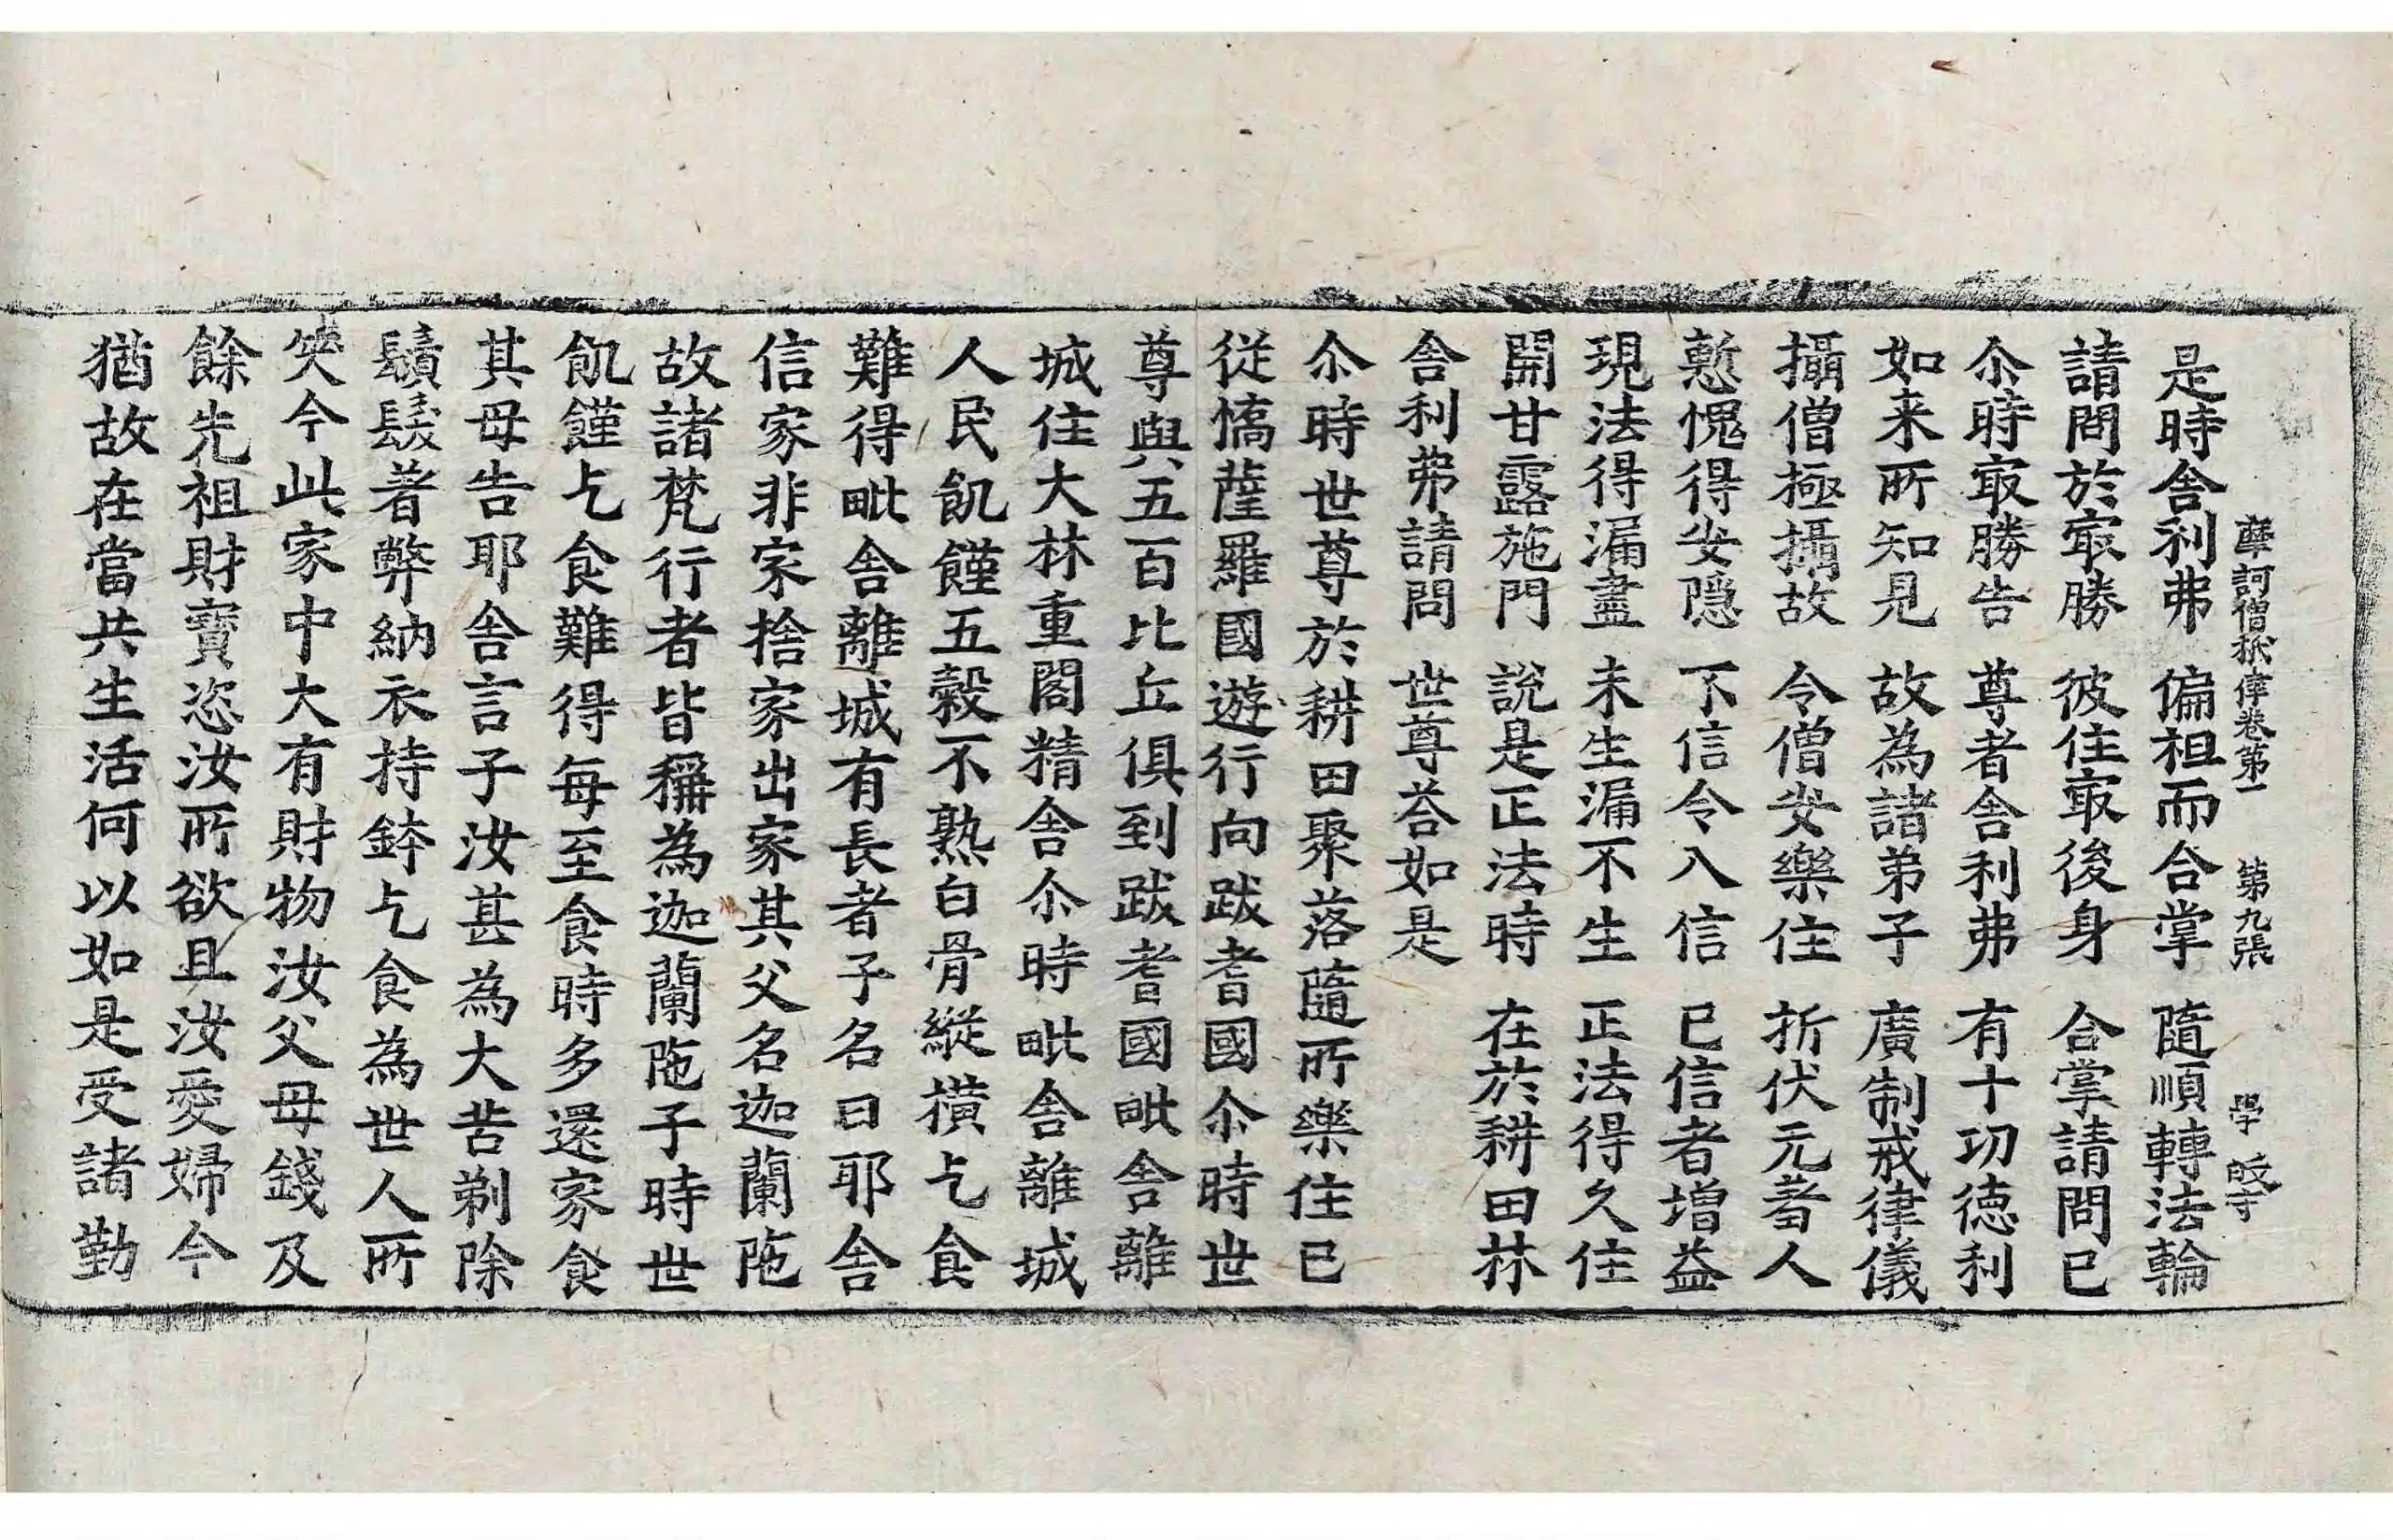 摩訶僧祇律卷第一 第九張 學
是時舍利弗 偏袒而合掌 隨順轉法輪
請問於㝡勝 彼住㝡後身 合掌請問已
尒時㝡勝告 尊者舍利弗 有十切德利
如来所知見 故為諸弟子 廣制戒律儀
攝僧極攝故 令僧安樂住 折伏无著人
慙愧得安隠 不信令入信 已信者增益
現法得漏盡 未生漏不生 正法得久住
開甘露施門 說是正法時 在於耕田林
舍利弗請問 世尊荅如是
尒時世尊於耕田聚落隨所樂住已
従憍薩羅國遊行向跋耆國尒時世
尊與五百比丘俱到跋耆國毗舍離
城住大林重閣精舍尒時毗舍離城
人民飢饉五穀不熟白骨縱橫乞食
難得毗舍離城有長者子名曰耶舍
信家非家捨家出家其父名迦蘭陁
故諸梵行者皆稱為迦蘭陁子時世
飢饉乞食難得每至食時多還家食
其母告耶舍言子汝甚為大苦剃除
鬚髮著弊納衣持鉢乞食為世人所
笑今此家中大有財物汝父母錢及
餘先祖財寶恣汝所欲且汝愛婦今
猶故在當共生活何以如是受諸勤